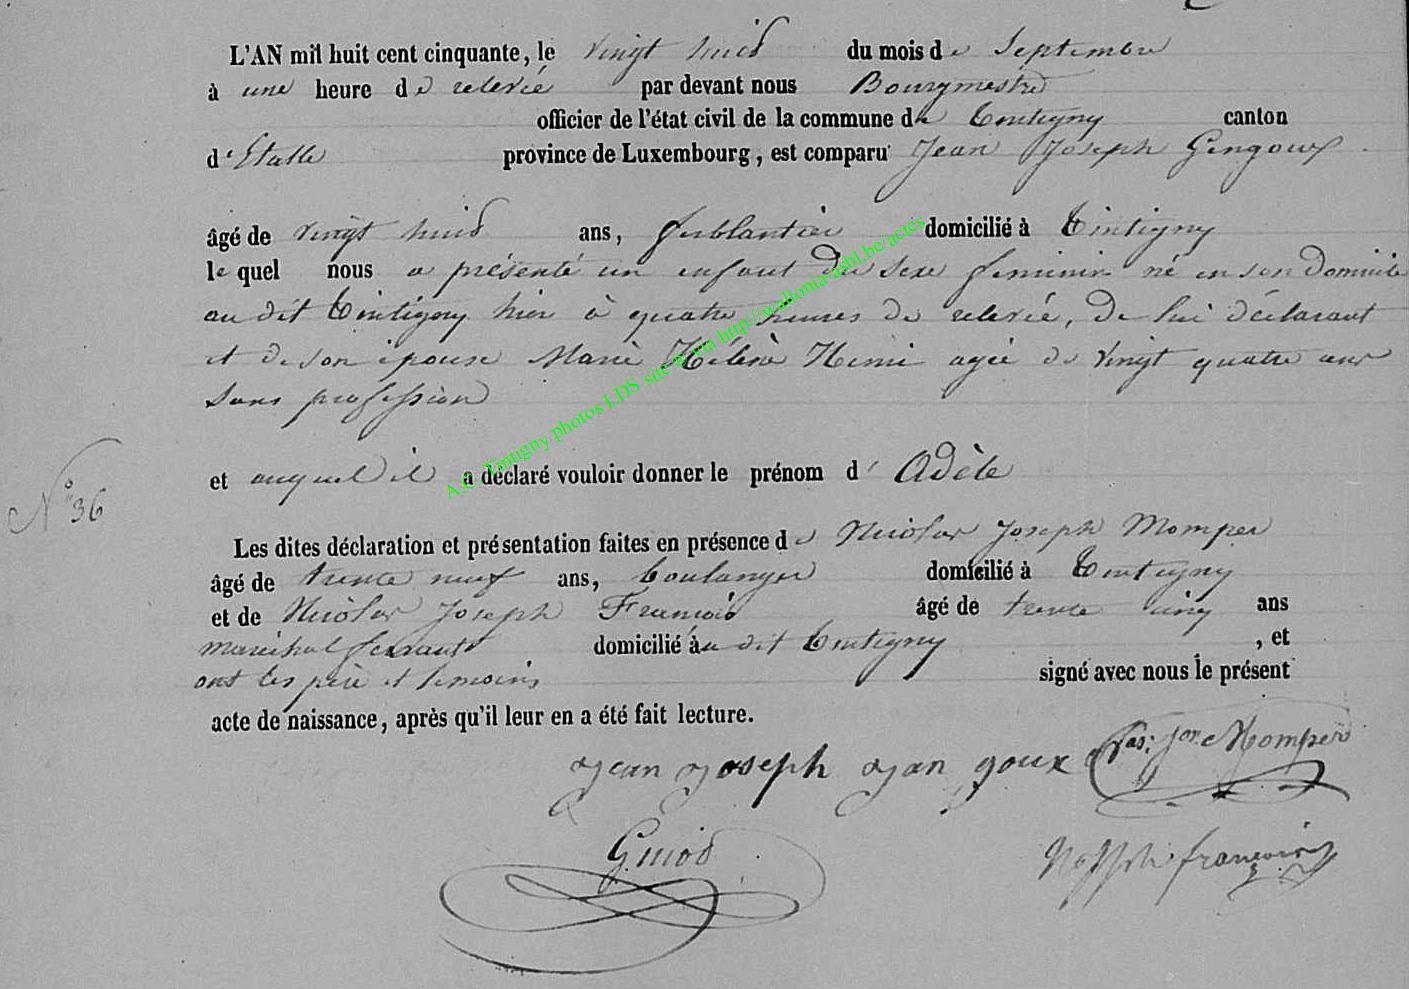 L'AN mil huit cent cinquante, le vingt huit du mois de Septembre
à une heure de relevée par devant nous Bourgmestre
officier de l'état civil de la commune de Tintigny canton
d'Etalle province de Luxembourg, est comparu Jean Joseph Gengoux
âgé de vingt huit ans, ferblantier domicilié à Tintigny
le quel nous a présenté un enfant du sexe feminin né en son domicile
au dit Tintigny hier à quatre heures de relevée, de lui déclarant
et de son épouse Marie Hélène agée de vingt quatre ans
sans profession
et auquel il a déclaré vouloir donner le prénom d' Adèle
N° 36
Les dites déclaration et présentation faites en présence de Nicolas Joseph Momper
âgé de trente neuf ans, boulanger domicilié à Tintigny
et de Nicolas Joseph François âgé de trente cinq ans
maréchal ferrant domicilié à au dit Tintigny , et
ont les père et témoins signé avec nous le présent
acte de naissance, après qu'il leur en a été fait lecture.
Jean Joseph Jan goux Momper
françois
A.C. Tintigny photos LDS site via http://wallonia-asbl.be/actes